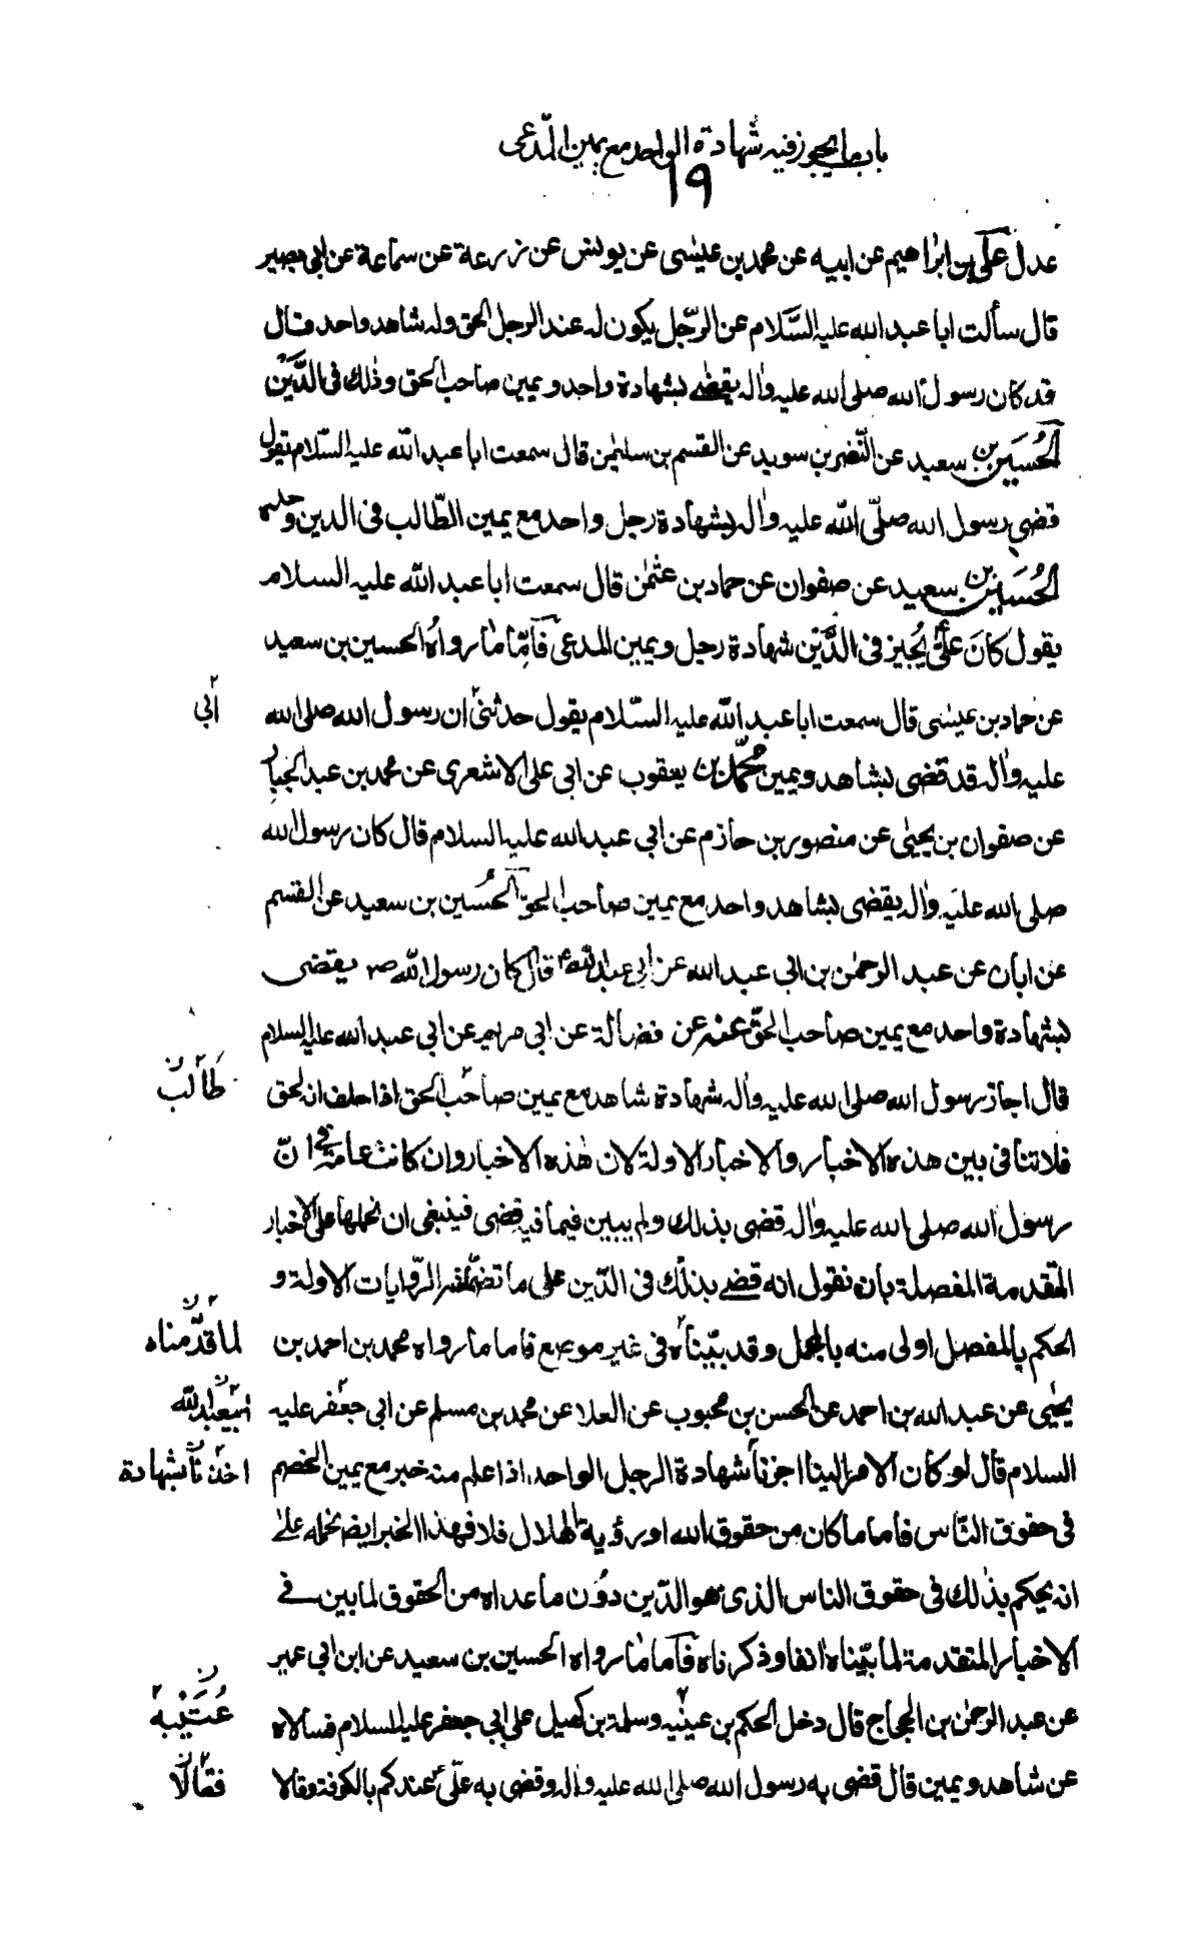 باب ما يجوز فيه شهادة الواحد مع يمين المدّعى
١٩
عدل علي بن ابراهيم عن ابيه عن محمد بن عيسٰى عن يونس عن زرعة عن سماعة عن ابي بصير
قال سألت ابا عبد الله عليه السَّلام عن الرّجل يكون له عند الرجل الحق وله شاهد واحد قال
قد كان رسول الله صلى الله عليه واٰله يقضے بشهادة واحد ويمين صاحب الحق وذٰلك فى الدَّيْن
الحُسَين بن سعيد عن النّضر بن سويد عن القسم بن سليمٰن قال سمعت ابا عبد الله عليه السّلام يقول
قضى رسول الله صلّى الله عليه واٰله بشهادة رجل واحد مع يمين الطّالب فى الدين وحده
الحُسَين بن سعيد عن صفوان عن حماد بن عثمٰن قال سمعت ابا عبد الله عليه السلام
يقول كانَ علىٌّ يُجيز فى الدَّيْن شهادة رجل ويمين المدعى فاَمّا ما رواهُ الحسين بن سعيد
عن حماد بن عيسٰى قال سمعت ابا عبد الله عليه السّلام يقول حدثنى ان رسول الله صلى الله
ابي
عليه واٰله قد قضى بشاهد ويمين محمّد بن يعقوب عن ابي على الاشعرى عن محمد بن عبد الجبار
عن صفوان بن يحيٰى عن منصور بن حازم عن ابي عبد الله عليه السلام قال كان رسول الله
صلى الله عليه واٰله يقضى بشاهد واحد مع يمين صاحب الحق الحُسين بن سعيد عن القسم
عن ابان عن عبد الرحمٰن بن ابي عبد الله عن ابي عبد الله ع قال كان رسول الله ص يقضى
بشهادة واحد مع يمين صاحب الحقّ عنه عن فضالة عن ابي مريم عن ابي عبد الله عليه السلام
قال اجاز رسول الله صلى الله عليه واٰله شهادة شاهد مع يمين صاحب الحق اذا حلف انه لحق
طَالب ن
فلا تنافى بين هذه الاخبار والاخبار الاولة لان هٰذه الاخبار وان كانت عامة فى انّ
رسول الله صلى الله عليه واٰله قضى بذلك ولم يبين فيما فيه قضى فينبغى ان نحملها على الاخبار
المتقدمة المفصلة بان نقول انه قضے بذلك فى الدّين على ما تضمّنه الرّوايات الاولة و
الحكم بالمفصل اولى منه بالمجمل وقد بيّناه فى غير موضع فاما ما رواه محمد بن احمد بن
لما قدّمناه ن
يحيٰى عن عبد الله بن احمد عن الحسن بن محبوب عن العلا عن محمد بن مسلم عن ابي جعفر عليه
ابيعبد الله ن
السلام قال لو كان الامر الينا اجزنا شهادة الرجل الواحد اذا علم منه خير مع يمين الخصم
اخذنا بشهادة ن
فى حقوق النّاس فاما ما كان من حقوق الله او رؤية الهلال فلا فهذا الخبر ايضا نحمله علىٰ
انه يحكم بذٰلك فى حقوق الناس الذى هو الدّين دُون ما عداه من الحقوق لما بين فے
الاخبار المتقدمة لما بيّناه انفا وذكرناه فاَما ما رواه الحسين بن سعيد عن ابن ابي عمير
عن عبد الرحمٰن بن الحجاج قال دخل الحكم بن عيينه وسلمة بن كهيل على ابي جعفر عليه السلام فسالاه
عُتَيْبه ن
عن شاهد ويمين قال قضى به رسول الله صلى الله عليه واٰله وقضى به علّى ع عندكم بالكوفة وقالا
فقالا ن